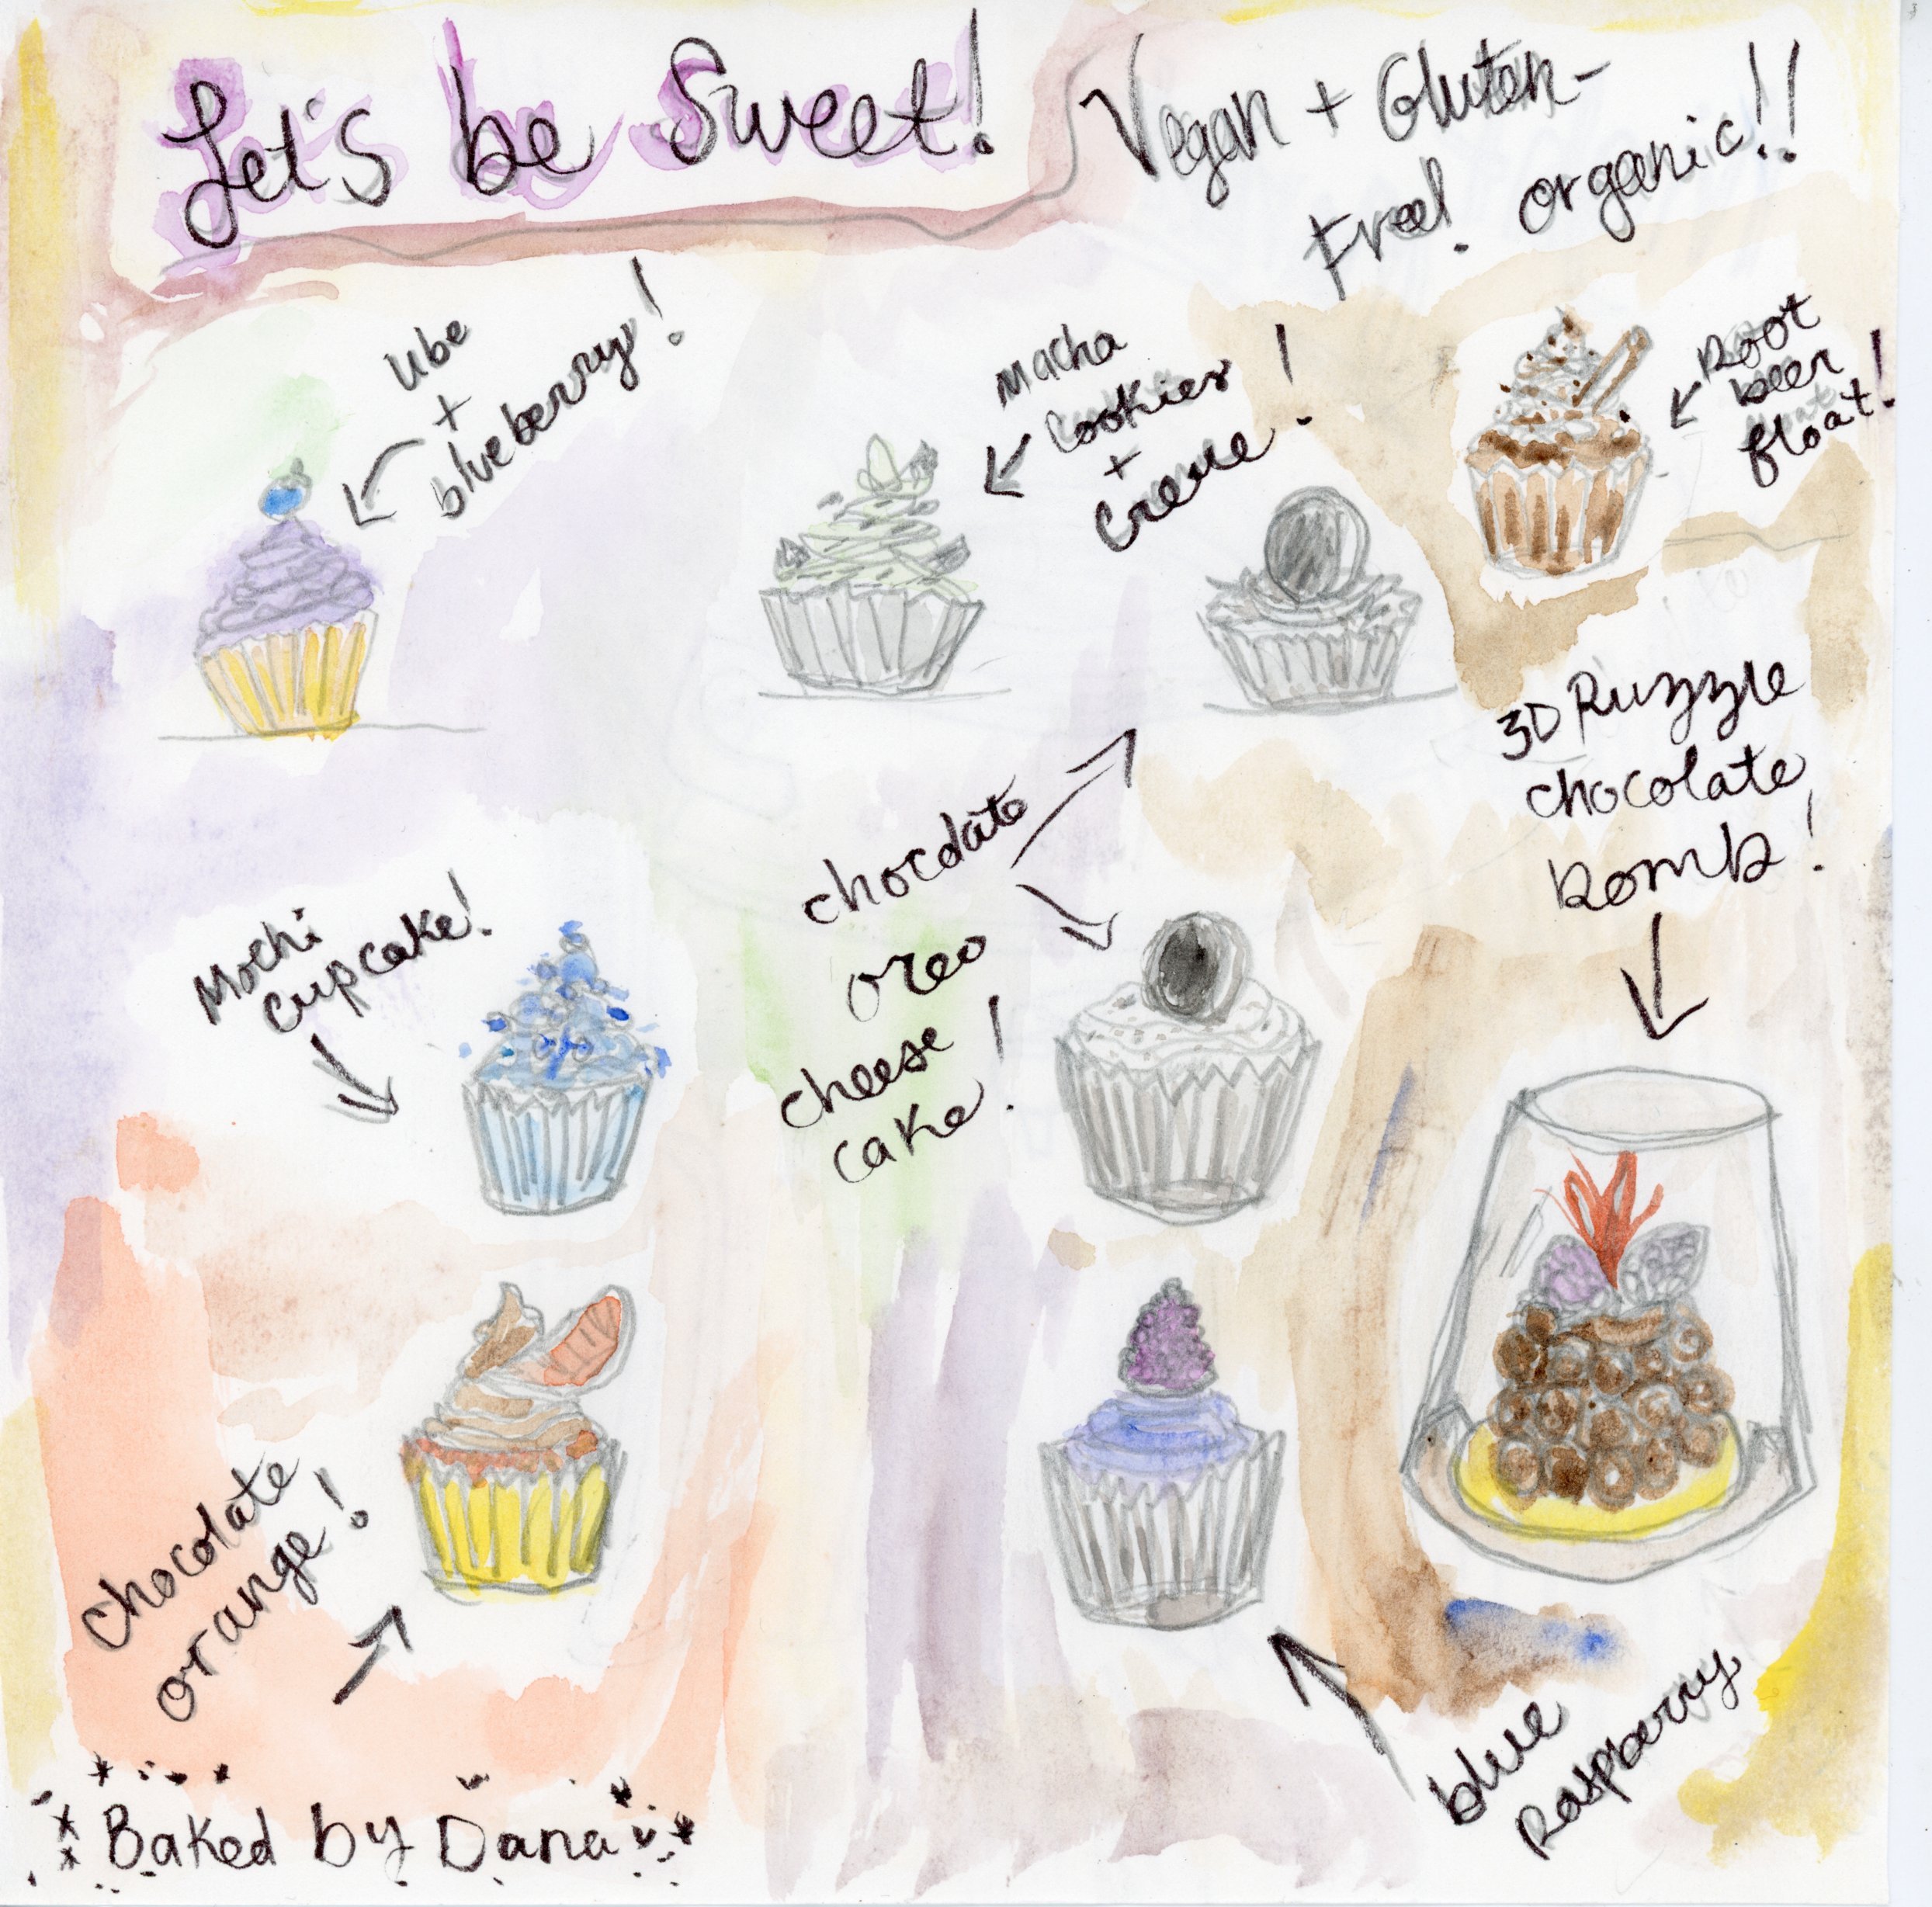 Let's be Sweet!
Vegan + Gluten-
Free! organic!!
Ube
+
blueberry!
Macha
Cookies
+
Creme!
Root
beer
float!
3D Puzzle
chocolate
Bomb!
Mochi
cupcake!
chocolate
oreo
cheese
cake!
Chocolate
orange!
blue
Raspberry
Baked by Dana